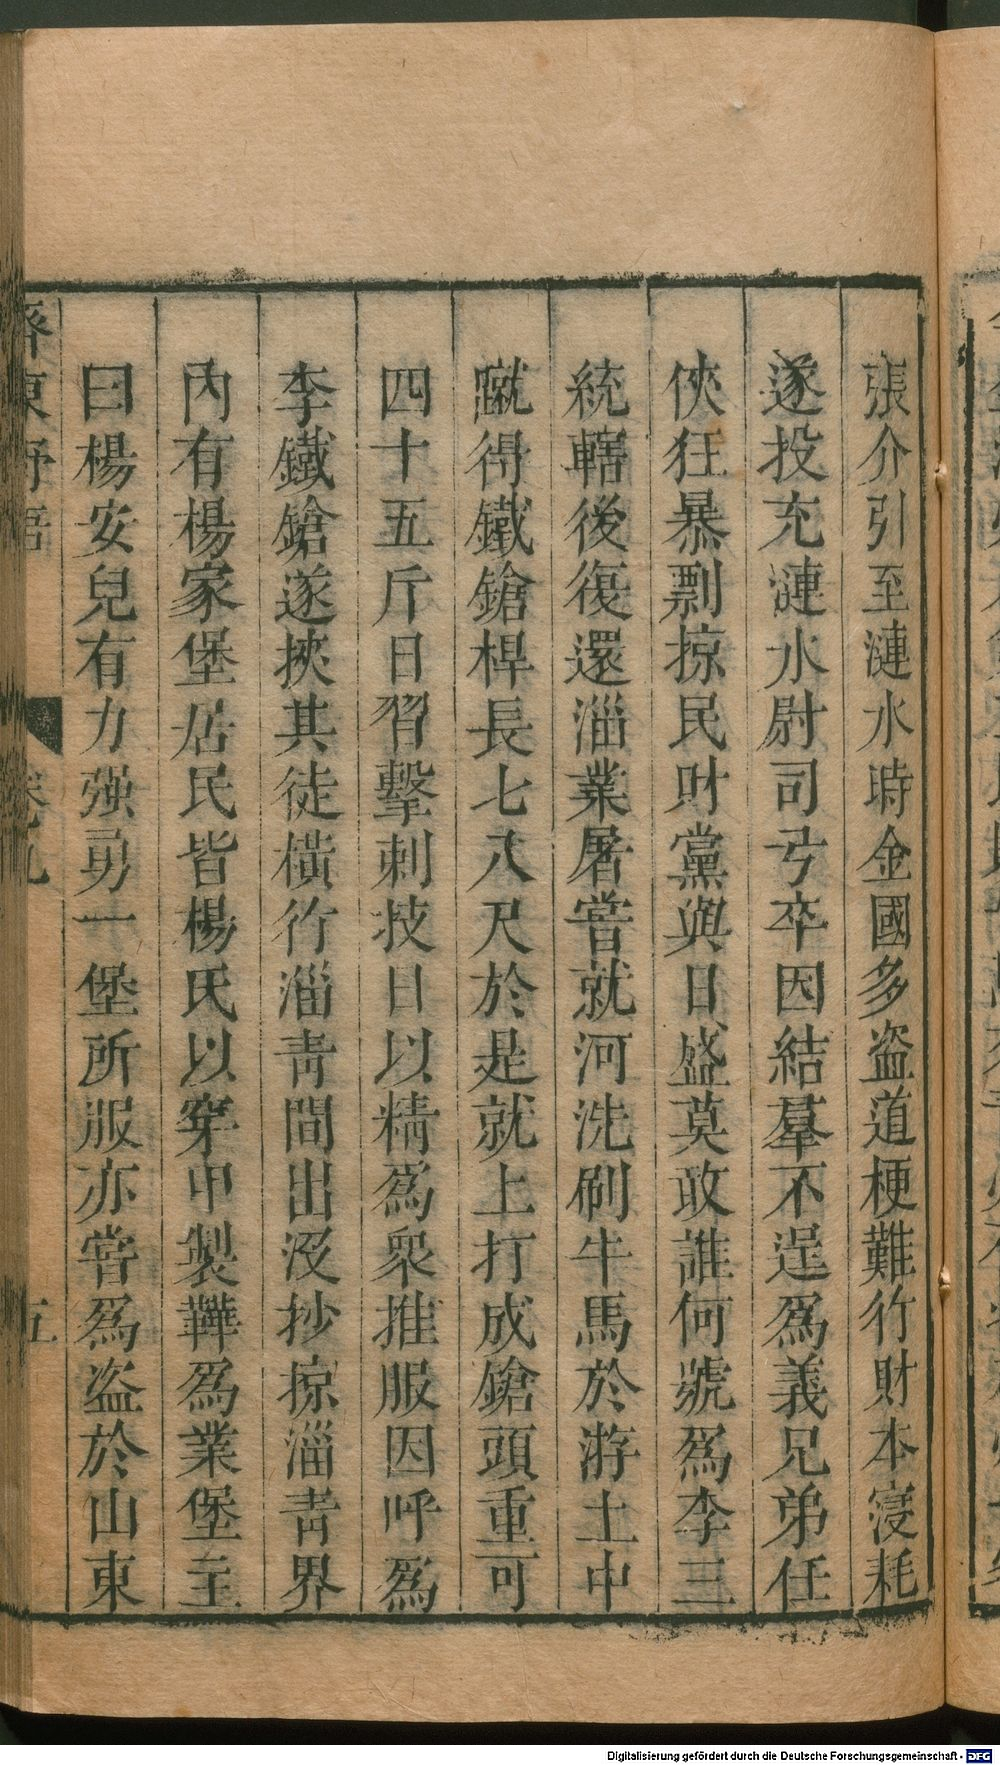 張介引至漣水時金國多盗道梗難行財本寖耗
遂投充漣水尉司弓卒因結羣不逞爲義兄弟任
俠狂暴剽掠民財黨與日盛莫敢誰何號爲李三
統轄後復還淄業屠嘗就河洗刷牛馬於游土中
蹴得鐵鎗桿長七八尺於是就上打成鎗頭重可
四十五斤日習擊刺技日以精爲衆推服因呼爲
李鐵鎗遂挾其徒橫行淄青間出沒抄掠淄青界
內有楊家堡居民皆楊氏以穿甲製鞾爲業堡主
曰楊安兒有力强勇一堡所服亦嘗爲盗於山東
齊東野語 卷九 五
Digitalisierung gefördert durch die Deutsche Forschungsgemeinschaft - DFG